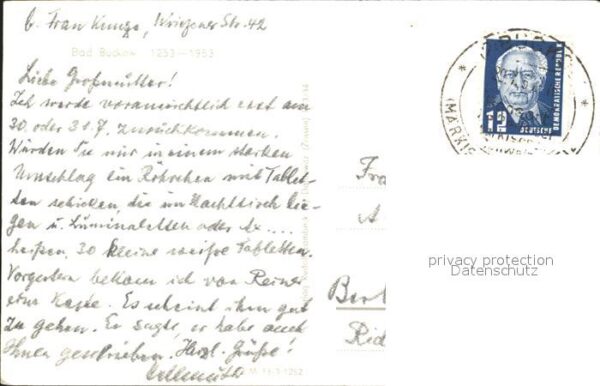 b. Frau Kunze, Wriezener Str. 42
Bad Buckow 1253-1953
Liebe Großmutter!
Ich werde voraussichtlich erst am
30. oder 31.7. zurückkommen.
Würden Sie mir in einem starken
Umschlag ein Röhrchen mit Tablet-
ten schicken, die im Nachttisch lie-
gen u. Luminaletten oder Ax....
heißen, 30 kleine weiße Tabletten.
Vorgestern bekam ich von Reiner
eine Karte. Es scheint ihm gut
zu gehen. Er sagte, er habe auch
Ihnen geschrieben. Herzl. Grüße!
Fra
A
Berl
Rid
12
DEUTSCHE
DEMOKRATISCHE REPUBLIK
(MÄRKIS
privacy protection
Datenschutz